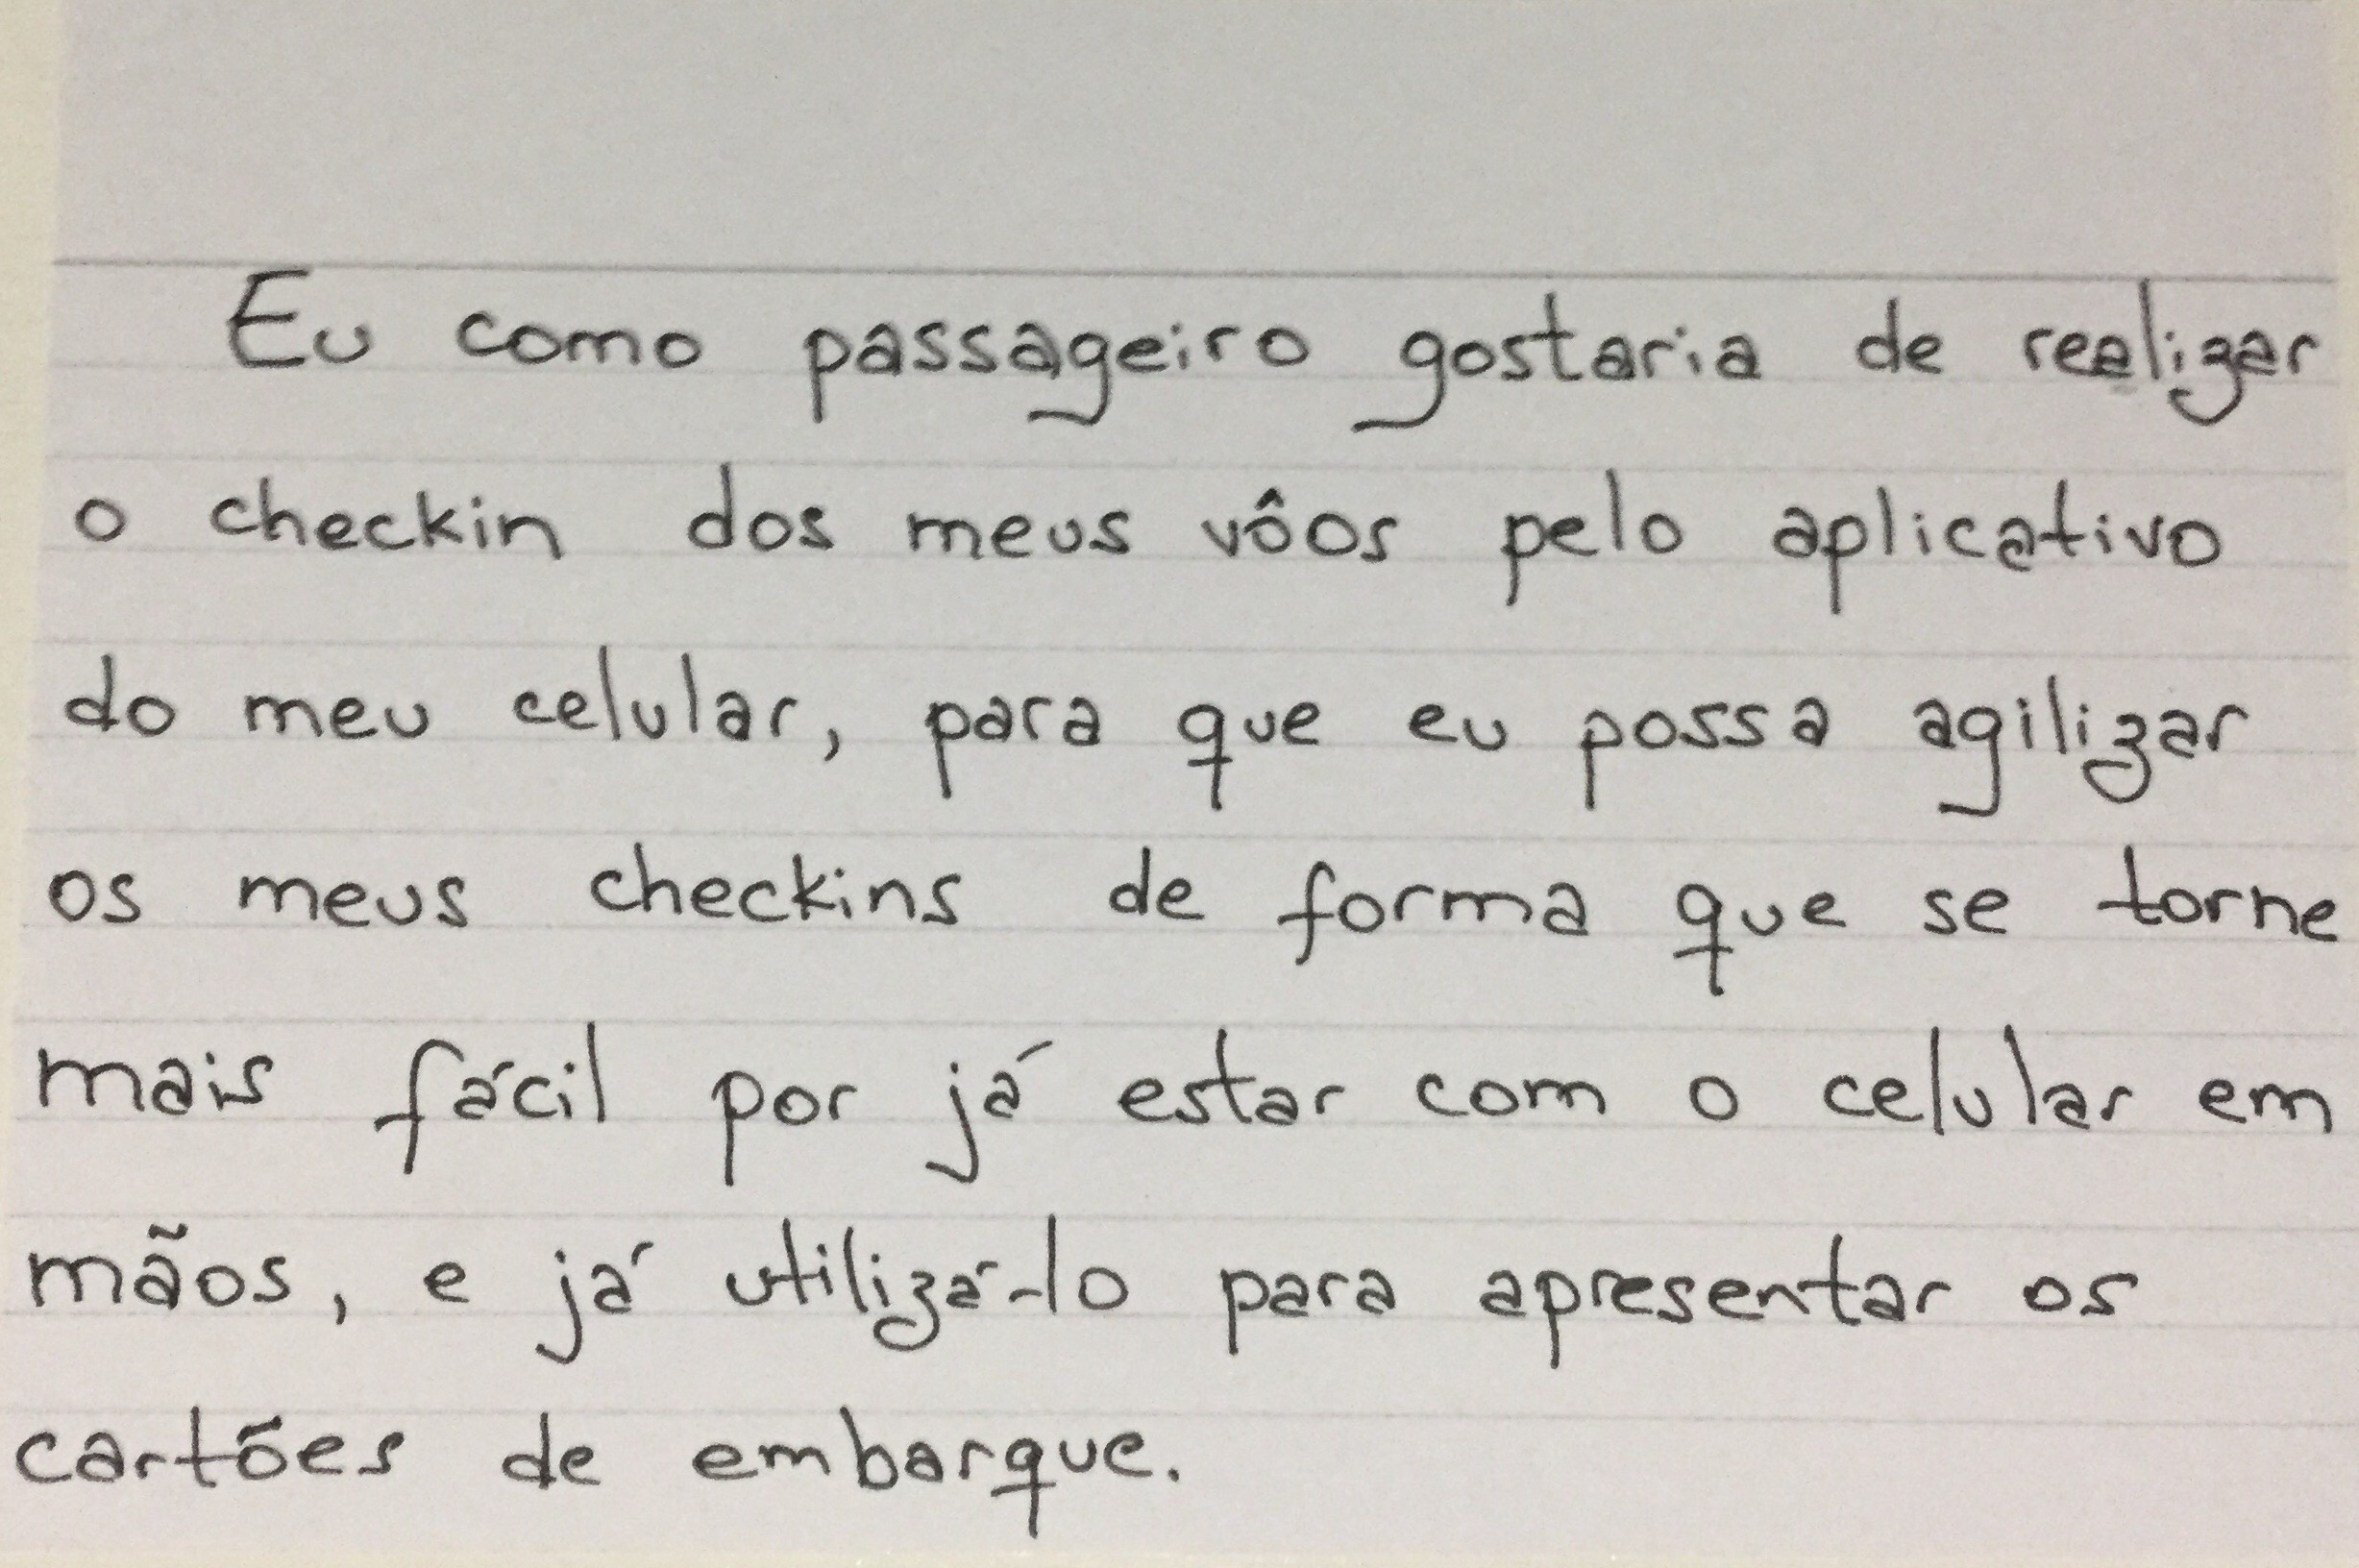 Eu como passageiro gostaria de realizar
o checkin dos meus vôos pelo aplicativo
do meu celular, para que eu possa agilizar
os meus checkins de forma que se torne
mais fácil por já estar com o celular em
mãos, e já utilizá-lo para apresentar os
cartões de embarque.